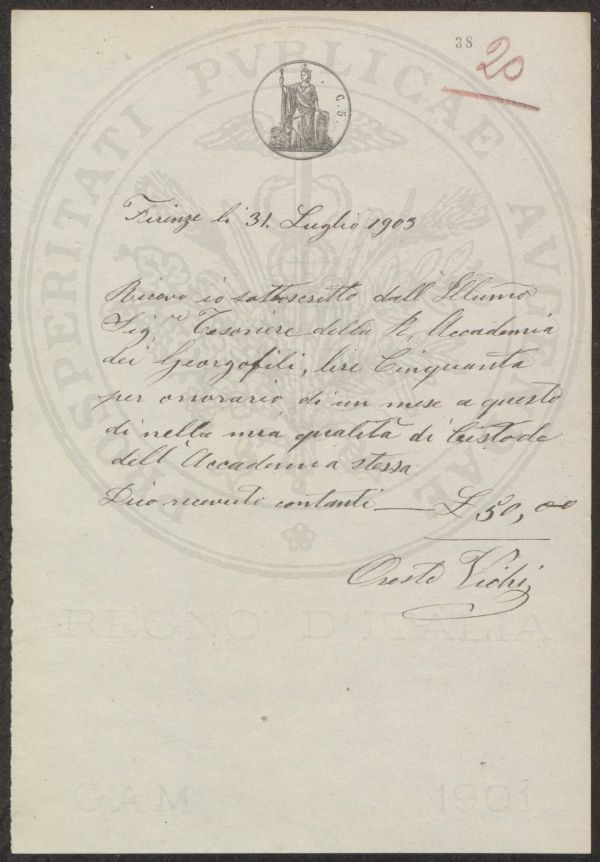 38
20
C. 5.
PROSPERITATI PVBLICAE AVGENDAE
Firenze li 31. Luglio 1903
Ricevo io sottoscritto dall'Illumo
Sig.re Tesoriere della R. Accademia
dei Georgofili, lire Cinquanta
per onorario di un mese a questo
dì nella mia qualità di Custode
dell'Accademia stessa
Dico ricevute contanti — £ 50,00
Oreste Vichi
REGNO D'ITALIA
GAM 1901